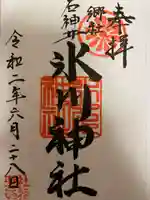 奉拝
郷社
石神井
氷川神社
令和二年六月二十八日